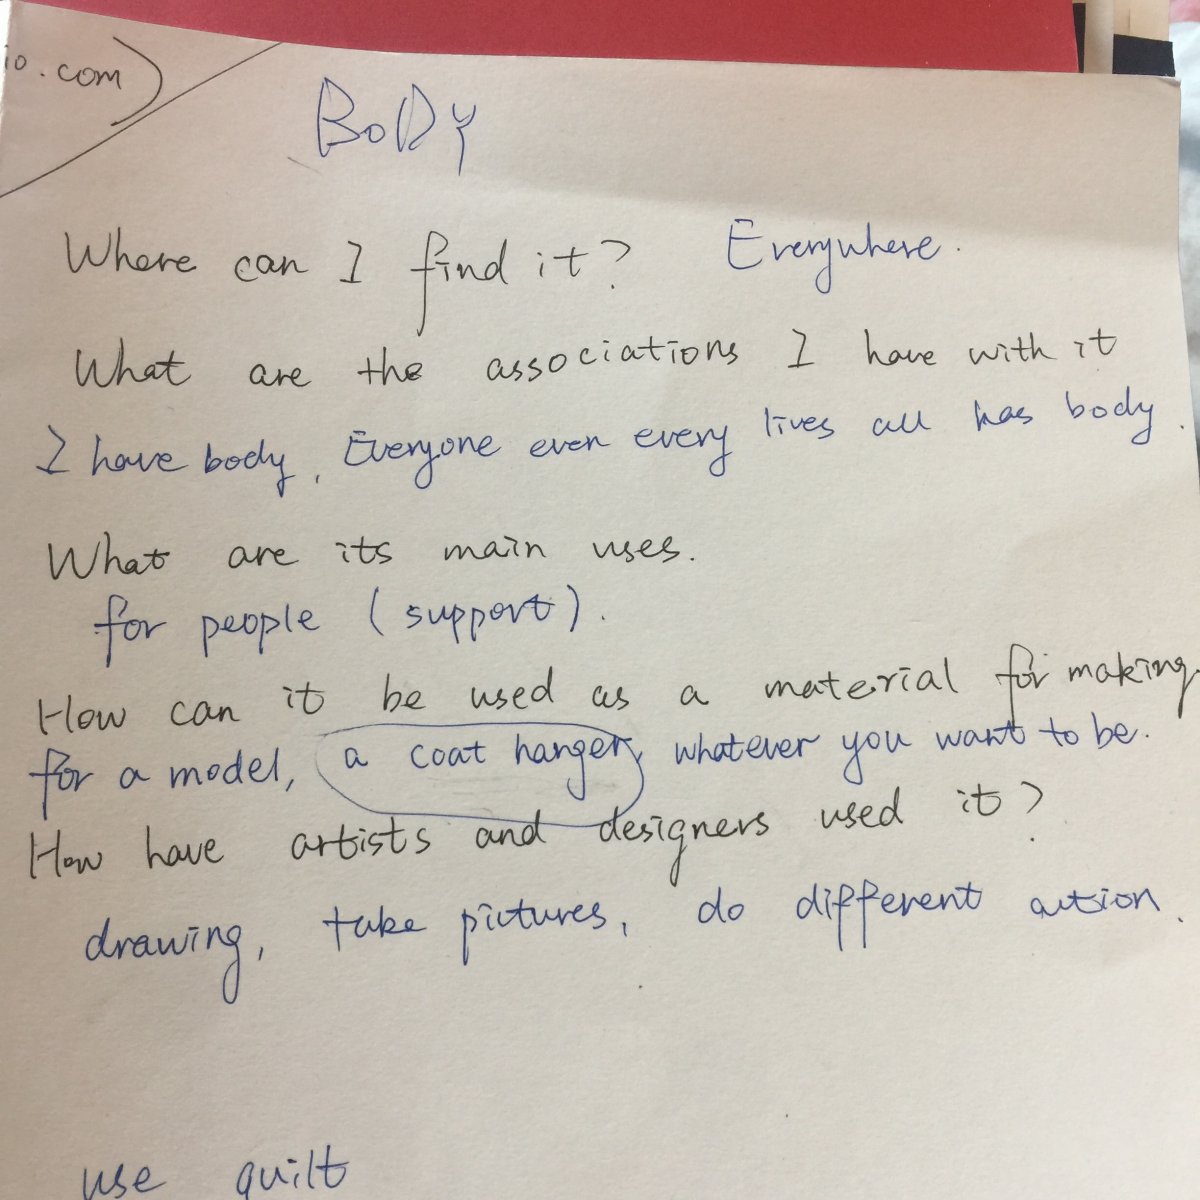 io.com)
BODY
Where can I find it? Everywhere.
What are the associations I have with it
I have body, Everyone even every lives all has body.
What are its main uses.
for people (support).
How can it be used as a material for making.
for a model, a coat hanger, whatever you want to be.
How have artists and designers used it?
drawing, take pictures, do different action.
use quilt